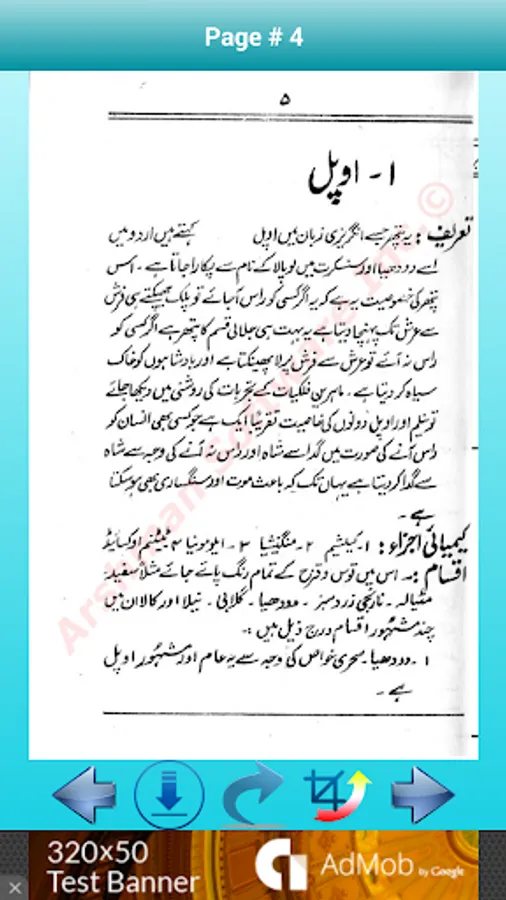 Page # 4
۵
۱- اوپل
تعریف : یہ پتھر جسے انگریزی زبان میں اوپل کہتے ہیں اردو میں
اسے دودھیا اور سنسکرت میں لوپالا کے نام سے پکارا جاتا ہے۔ اس
پتھر کی خصوصیت یہ ہے کہ یہ اگر کسی کو راس آجائے تو پلک جھپکتے ہی فرش
سے عرش تک پہنچا دیتا ہے یہ بہت ہی جلالی قسم کا پتھر ہے اگر کسی کو
راس نہ آئے تو عرش سے فرش پر لا پھینکتا ہے اور بادشاہوں کو خاک
سیاہ کر دیتا ہے۔ ماہرین فلکیات کے تجربات کی روشنی میں دیکھا جائے
تو نیلم اور اوپل دونوں کی خاصیت تقریباً ایک ہے جو کسی بھی انسان کو
راس آنے کی صورت میں گدا سے شاہ اور راس نہ آنے کی وجہ سے شاہ
سے گدا کر دیتا ہے یہاں تک کہ باعث موت اور سنگساری بھی ہو سکتا
ہے۔
کیمیائی اجزاء : ۱- کیلشیم ۲- منگنیشیا ۳- ایلومونیا ۴ ٹیٹینم اوکسائیڈ
اقسام :- اس میں قوس و قزح کے تمام رنگ پائے جائے مثلاً سفید،
مٹیالہ - نارنجی زرد سبز - دودھیا - گلابی - نیلا اور کالا ان میں
چند مشہور اقسام درج ذیل ہیں :-
۱- دودھیا۔ سحری خواص کی وجہ سے یہ عام اور مشہور اوپل
ہے۔
Arshman Software Inc.©
320×50
Test Banner
AdMob by Google